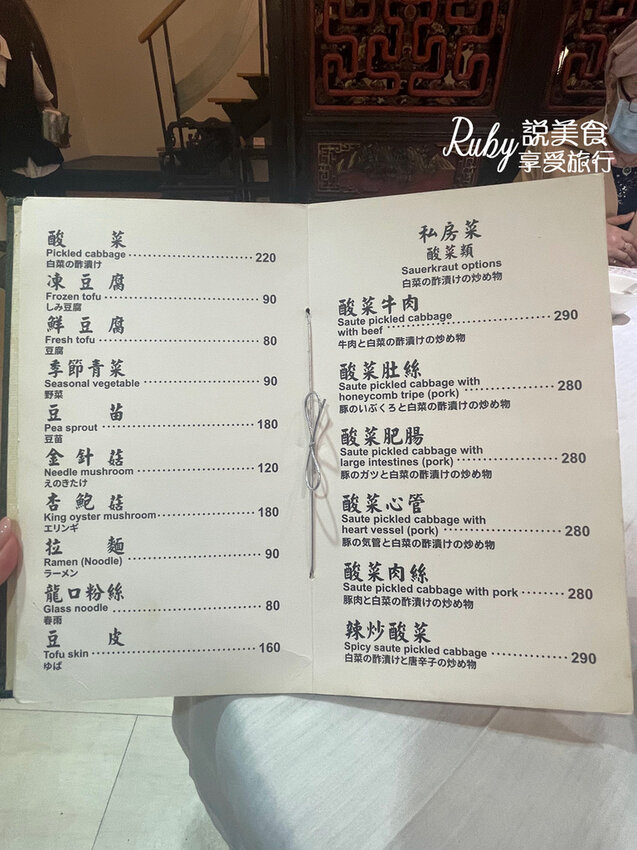 Ruby 說美食
享受旅行
酸 菜
Pickled cabbage 220
白菜の酢漬け
凍豆腐
Frozen tofu 90
しみ豆腐
鮮豆腐
Fresh tofu 80
豆腐
季節青菜
Seasonal vegetable 90
野菜
豆 苗
Pea sprout 180
豆苗
金針菇
Needle mushroom 120
えのきたけ
杏鮑菇
King oyster mushroom 180
エリンギ
拉 麵
Ramen (Noodle) 90
ラーメン
龍口粉絲
Glass noodle 80
春雨
豆 皮
Tofu skin 160
ゆば
私房菜
酸菜類
Sauerkraut options
白菜の酢漬けの炒め物
酸菜牛肉
Saute pickled cabbage
with beef 290
牛肉と白菜の酢漬けの炒め物
酸菜肚絲
Saute pickled cabbage with
honeycomb tripe (pork) 280
豚のいぶくろと白菜の酢漬けの炒め物
酸菜肥腸
Saute pickled cabbage with
large intestines (pork) 280
豚のガツと白菜の酢漬けの炒め物
酸菜心管
Saute pickled cabbage with
heart vessel (pork) 280
豚の気管と白菜の酢漬けの炒め物
酸菜肉絲
Saute pickled cabbage with pork 280
豚肉と白菜の酢漬けの炒め物
辣炒酸菜
Spicy saute pickled cabbage 290
白菜の酢漬けと唐辛子の炒め物